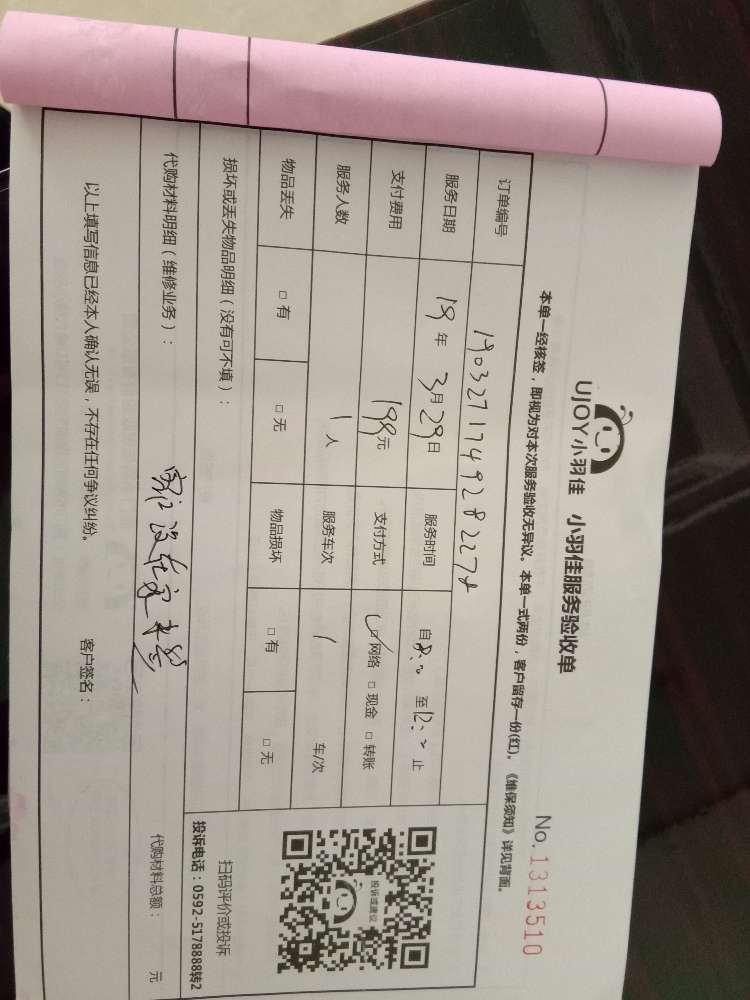 UJOY小羽佳 小羽佳服务验收单
No.1313510
本单一经核签，即视为对本次服务验收无异议。本单一式两份，客户留存一份(红)。《维保须知》详见背面。
订单编号
服务日期 19年 3月29日 服务时间 自8:00 至12:00 止
支付费用 199元 支付方式 □网络 □现金 □转账
服务人数 1人 服务车次 1 车/次
物品丢失 □有 □无 物品损坏 □有 □无
投诉或建议
扫码评价或投诉
投诉电话：0592-5178888转2
损坏或丢失物品明细（没有可不填）：
代购材料明细（维修业务）： 代购材料总额： 元
客户没在家未签
以上填写信息已经本人确认无误，不存在任何争议纠纷。 客户签名：